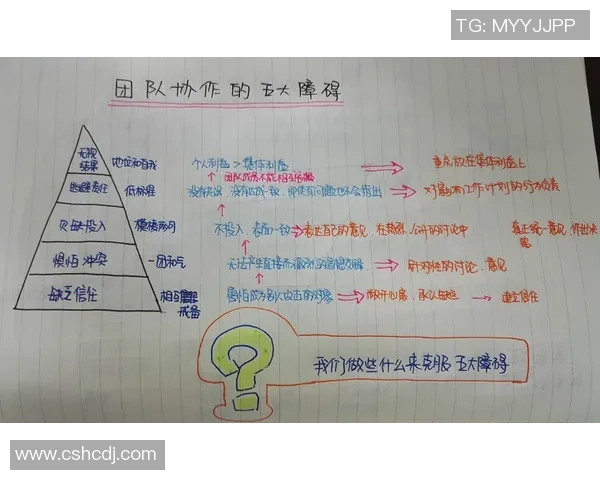 TG: MYYJJPP
团队协作的五大障碍
无视结果 地位和自我 个人利益>集体利益 重点放在集体利益上
团队成员不能相互
逃避责任 低标准 没有 对影响工作计划的行为负责
欠缺投入 模棱两可 不投入,表面一致 表达自己的意见,在 公开的讨论中 真正统一意见,作出决策
惧怕冲突 一团和气 无法产生直接而激烈的思想交锋 针对性的讨论,意见
缺乏信任 相互戒备 害怕成为别人攻击的对象 敞开心扉,承认 建立信任
?
我们做些什么来克服五大障碍
www.cshcdj.com